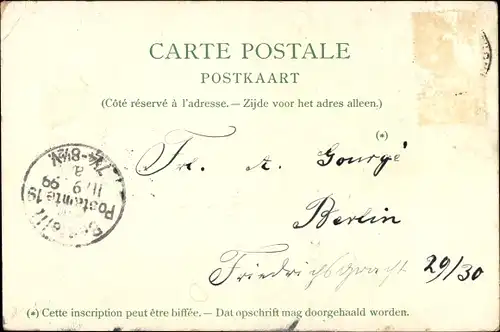 CARTE POSTALE
POSTKAART
(Côté réservé à l'adresse. — Zijde voor het adres alleen.)
(*)
Frl. A. Gourgé
Berlin
Friedrichsgracht 29/30
Postamte 19
11/9.99
a.
7¼-8½N.
(*) Cette inscription peut être biffée. — Dat opschrift mag doorgehaald worden.